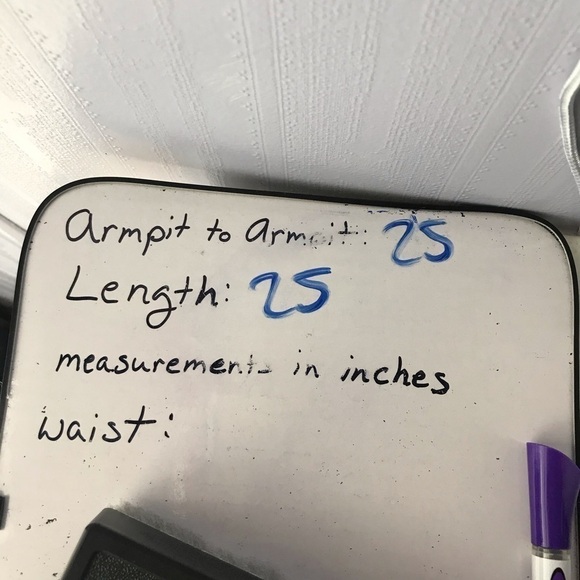 Armpit to Armpit: 25
Length: 25
measurements in inches
waist: